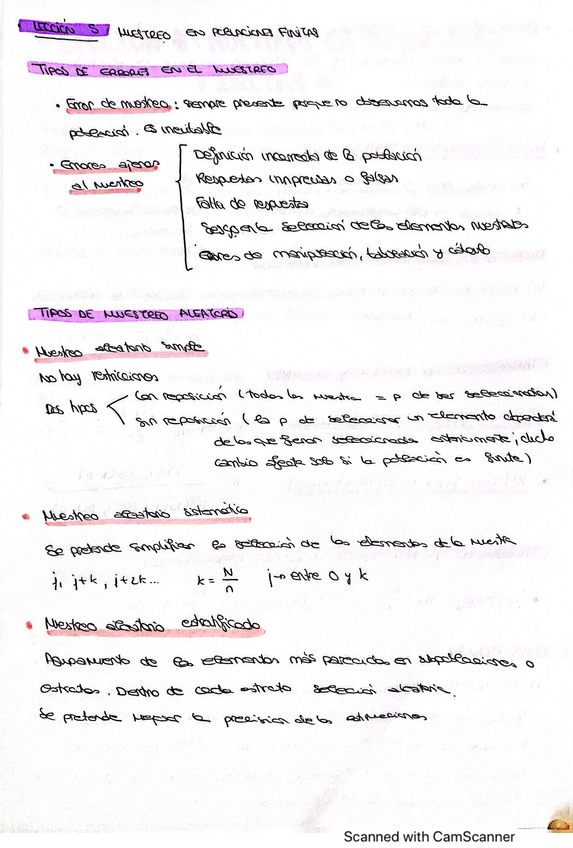 LECCIÓN 5 MUESTREO EN POBLACIONES FINITAS
TIPOS DE ERRORES EN EL MUESTREO
• Error de muestreo: siempre presente porque no observamos toda la
población. Es inevitable
• Errores ajenos
al muestreo
Definición incorrecta de la población
Respuestas imprecisas o falsas
Falta de respuesta
Sesgo en la selección de los elementos muestrales
Errores de manipulación, tabulación y cálculo
TIPOS DE MUESTREO ALEATORIO
• Muestreo aleatorio simple
No hay restricciones
Dos tipos
Con reposición (todos los muestra = p de ser seleccionados)
Sin reposición (la p de seleccionar un elemento dependerá
de los que fueron seleccionados anteriormente; dicho
cambio afecta solo si la población es finita)
• Muestreo aleatorio sistemático
Se pretende simplificar la selección de los elementos de la muestra
j, j+k, j+2k... k = N/n j→ entre 0 y k
• Muestreo aleatorio estratificado
Agrupamiento de los elementos más parecidos en subpoblaciones o
estratos. Dentro de cada estrato selección aleatoria.
Se pretende mejorar la precisión de las estimaciones
Scanned with CamScanner